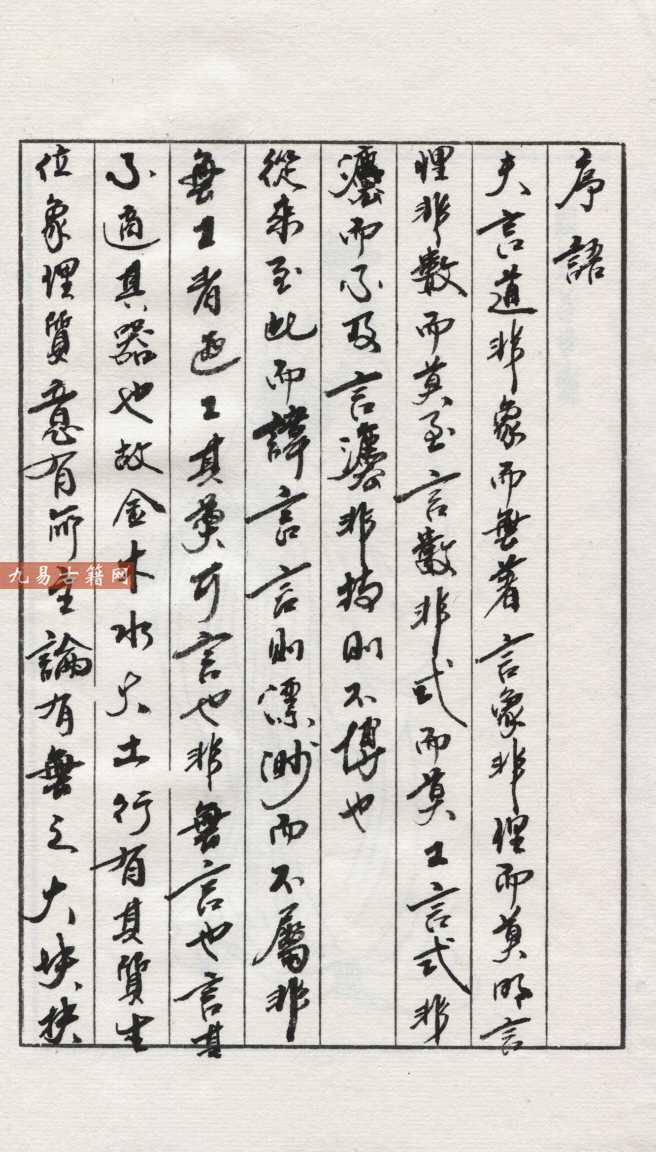 序語
夫言道非象而無著言象非理而莫明言
理非數而莫至言數非式而莫工言式非
而不及言非物則不博也
從來至此而諱言言則漂渺而不屬非
無工者工其莫可言也非無言也言其
不適其器也故金木水火土行有其質生
位象理質意有所主論有無之大塊扶
九易古籍网